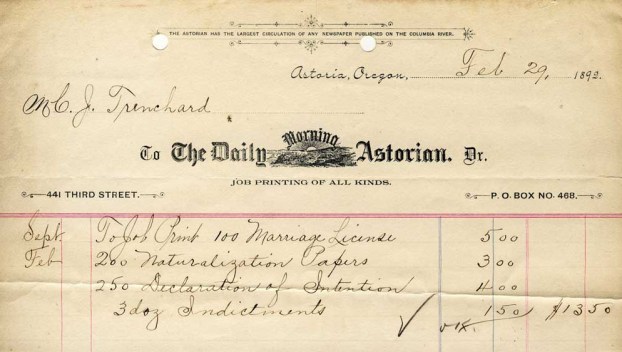 THE ASTORIAN HAS THE LARGEST CIRCULATION OF ANY NEWSPAPER PUBLISHED ON THE COLUMBIA RIVER.
Astoria, Oregon, Feb 29, 1892.
M C. J. Trenchard
To The Daily Morning Astorian. Dr.
JOB PRINTING OF ALL KINDS.
441 THIRD STREET. P. O. BOX NO. 468.
Sept. To Job Print 100 Marriage License 5 00
Feb 200 Naturalization Papers 3 00
250 Declaration of Intention 4 00
3 doz Indictments 1 50 $13 50